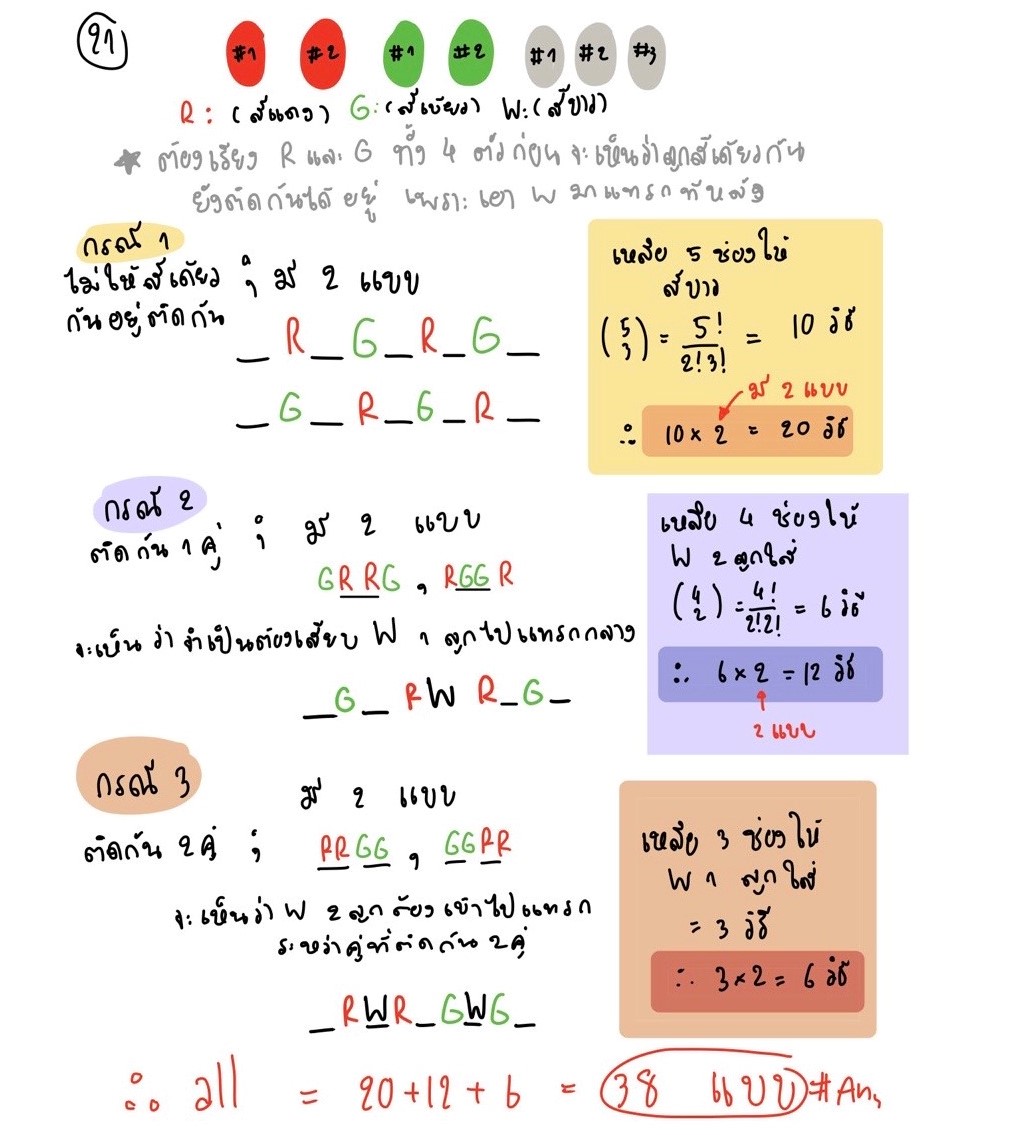 21
#1 #2 #1 #2 #1 #2 #3
R: (สีแดง) G: (สีเขียว) W: (สีขาว)
* ต้องเรียง R และ G ทั้ง 4 ตัวก่อน จะเห็นว่าลูกสีเดียวกัน
ยังติดกันได้อยู่ เพราะเอา W มาแทรกทีหลัง
กรณี 1
ไม่ให้สีเดียว
กันอยู่ติดกัน ; มี 2 แบบ
_ R _ G _ R _ G _
_ G _ R _ G _ R _
เหลือ 5 ช่องให้
สีขาว
(5 3) = 5!/2!3! = 10 วิธี
มี 2 แบบ
∴ 10 × 2 = 20 วิธี
กรณี 2
ติดกัน 1 คู่ ; มี 2 แบบ
GRRG , RGGR
จะเห็นว่าจำเป็นต้องเสียบ W 1 ลูกไปแทรกกลาง
_ G _ R W R _ G _
เหลือ 4 ช่องให้
W 2 ลูกใส่
(4 2) = 4!/2!2! = 6 วิธี
∴ 6 × 2 = 12 วิธี
2 แบบ
กรณี 3
มี 2 แบบ
ติดกัน 2 คู่ ; RRGG , GGRR
จะเห็นว่า W 2 ลูกต้องเข้าไปแทรก
ระหว่างคู่ที่ติดกัน 2 คู่
_ R W R _ G W G _
เหลือ 3 ช่องให้
W 1 ลูกใส่
= 3 วิธี
∴ 3 × 2 = 6 วิธี
∴ all = 20 + 12 + 6 = 38 แบบ #Ans